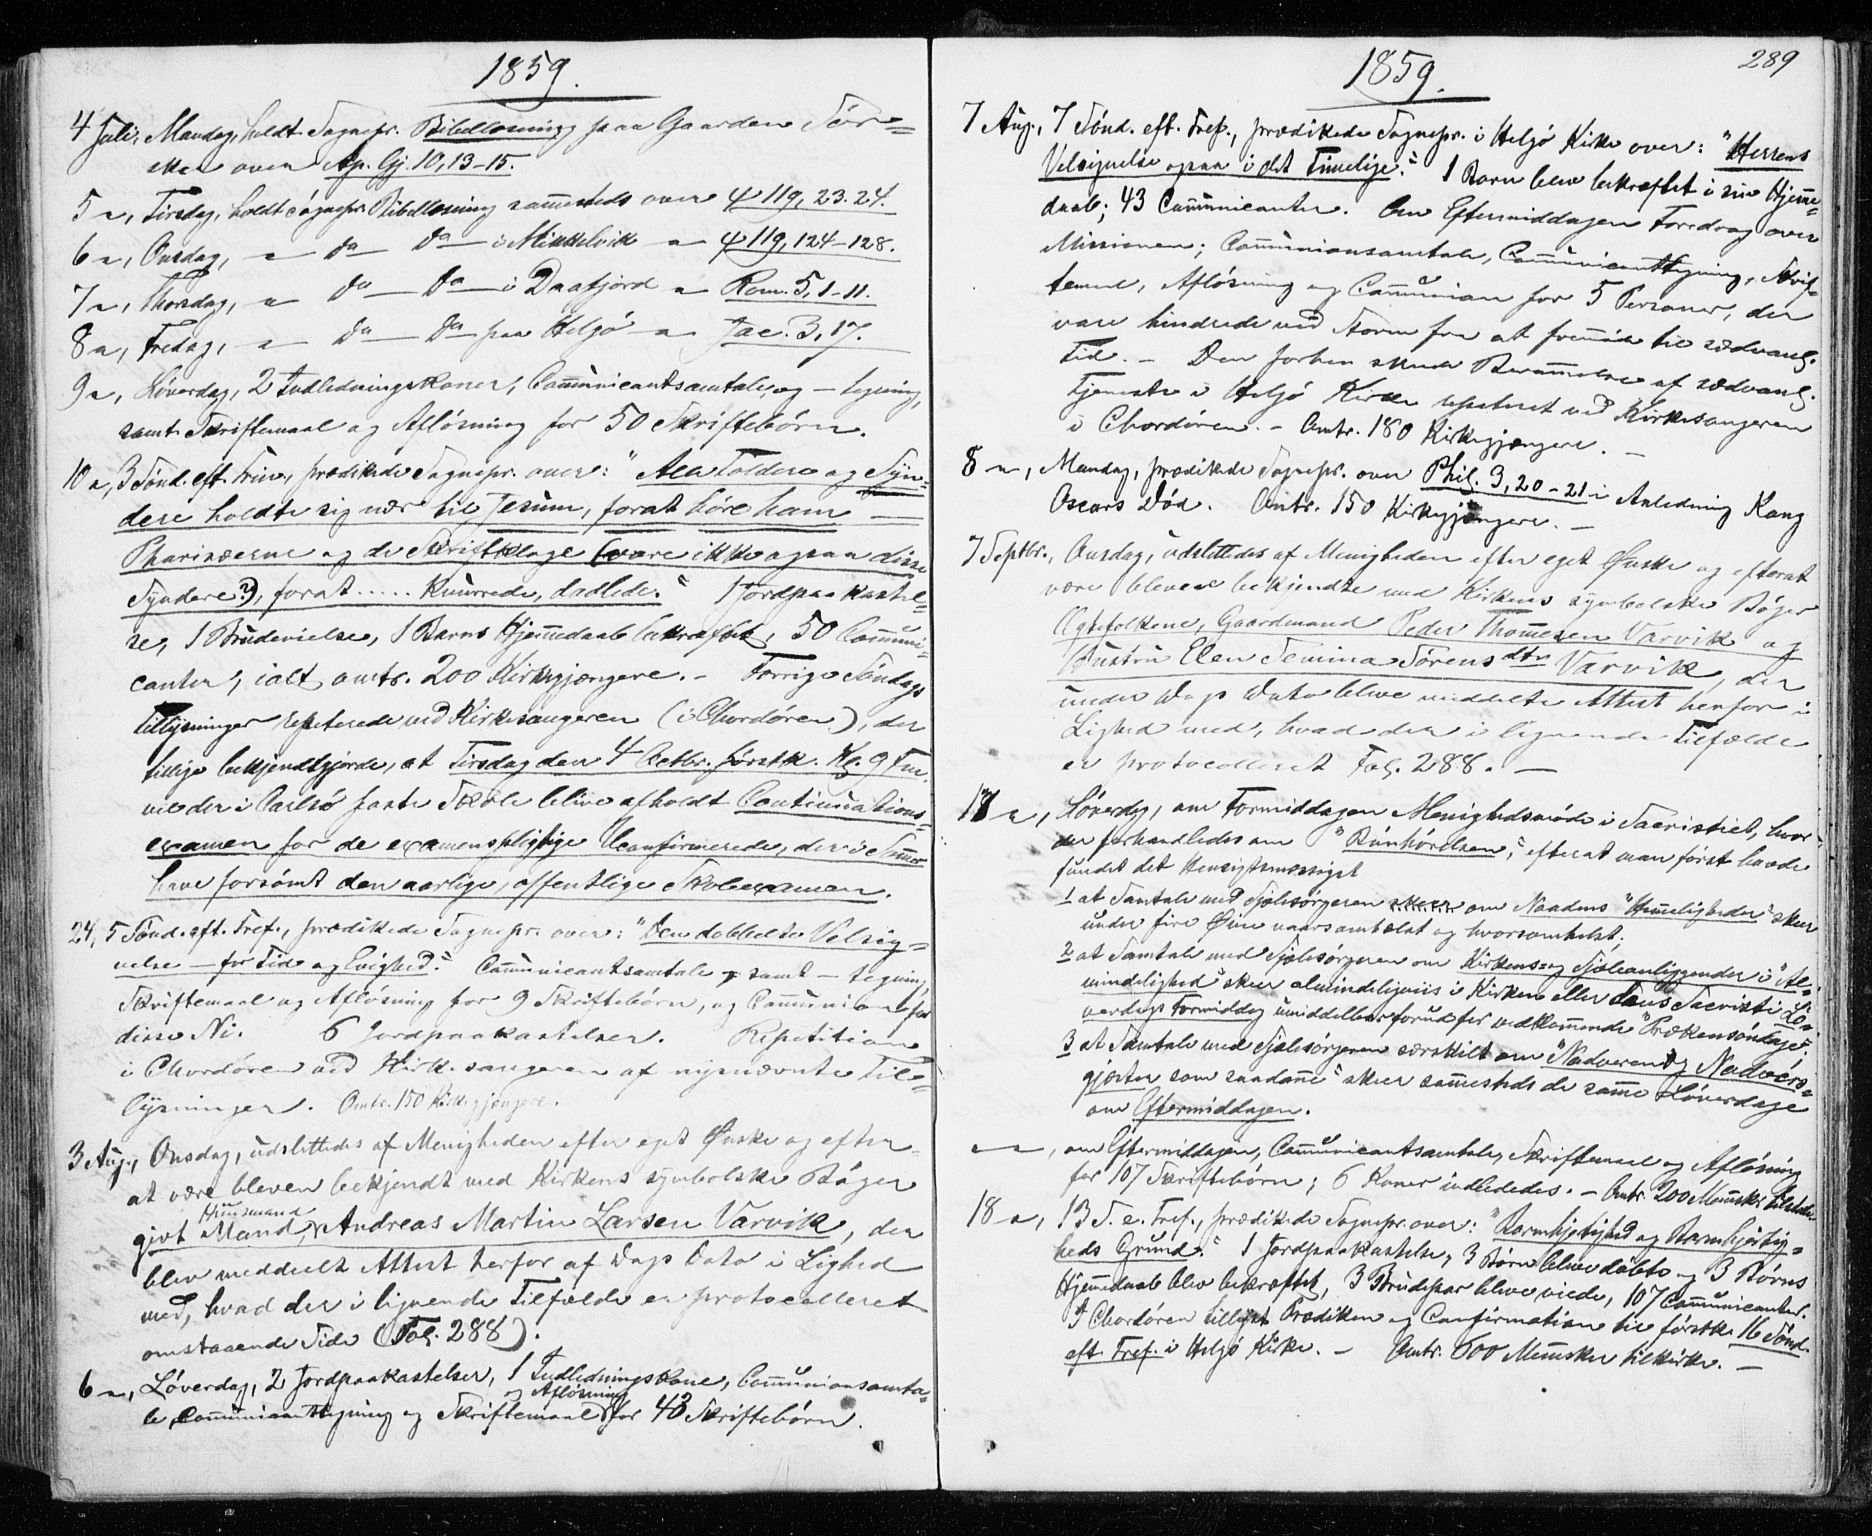 1859.
4 Juli, Mandag, holdt Sognepr. Bibellæsning paa Gaarden Tór=
sken over Ap. Gj. 10, 13-15.
5 "", Tirsdag, holdt Sognepr. Bibellæsning sammesteds over ψ 119, 23. 24.
6 "", Onsdag, " do do i Mikkelvik " ψ 119, 124-128.
7 "", Thorsdag, " do do i Daafjord " Rom. 5, 1-11.
8 "", Fredag, " do do paa Helgó " Jac. 3, 17.
9 "", Lóverdag, 2 Indledningskoner, Com̄unicantsamtale, og - tegning,
samt Skriftemaal og Aflósning for 50 Skriftebórn.
10 ", 3 Sónd. eft. Trin., prædikede Sognepr. over: "Alle Toldere og Syn=
dere holdte sig nær til Jesum, forat hóre ham
Pharisæerne og de Skriftkloge (vare ikke ogsaa disse
Syndere?), forat ..... Knurrede, dadlede." 1 Jordpaakastel=
se, 1 Brudevielse, 1 Barns Hjem̄edaab bekræftet, 50 Com̄uni=
canter, ialt omtr. 200 Kirkegjængere. - Forrige Sóndags
tillysninger repeterede ved Kirkesangeren (i Chordóren), der
tillige bekjendtgjorde, at Tirsdag den 4 Octbr. fórstk. Kl. 9 Fm.
vil der i Carlsó faste Skole blive afholdt Continuations=
examen for de examenspligtige Uconfirmerede, der i Som̄er
have forsómt den aarlige, offentlige Skoleexamen.
24, 5 Sónd. eft. Tref., prædikede Sognepr. over: "Den dobbelte Velsig=
nelse - for Tid og Evighed." Com̄unicantsamtale, samt - tegning,
Skriftemaal og Aflósning for 9 Skriftebórn, og Com̄union for
disse Ni. 6 Jordpaakastelser. Repetition
i Chordóren ved Kirkesangeren af nysnævnte Til=
lysninger. Omtr. 150 Kirkegjængere.
3 Aug., Onsdag, udslettedes af Menigheden efter eget Ónske og efter
at være bleven bekjendt med Kirkens symbolske Bóger
Huusmand
givt Mand, Andreas Martin Larsen Varvik, der
blev meddeelt Attest herfor af Dags Dato i Lighed
med, hvad der i lignende Tilfælde er protocolleret
omstaaende Side (Fol. 288).
6 "", Lóverdag, 2 Jordpaakastelser, 1 Indledningskone, Com̄unionsamta=
Aflósning
le, Com̄unicanttegning og Skriftemaal for 43 Skriftebórn.
1859. 289
7 Aug., 7 Sónd. eft. Tref., prædikede Sognepr. i Helgó Kirke over: "Herrens
Velsignelse ogsaa i det Timelige." 1 Barn blev bekræftet i sin Hjem̄e=
daab; 43 Com̄unicanter. Om Eftermiddagen Foredrag over
Missionen; Com̄unionsamtale, Com̄unicanttegning, Skrif=
temaal, Aflósning og Com̄union for 5 Personer, der
vare hindrede ved Storm fra at frem̄óde til sædvanl.
Tid. - Den forhen skeede Beram̄else af sædvanl.
Tjeneste i Helgó Kirke repeteret ved Kirkesangeren
i Chordóren. - Omtr. 180 Kirkegjængere. -
8 "", Mandag, prædikede Sognepr. over Phil. 3, 20-21 i Anledning Kong
Oscars Dód. Omtr. 150 Kirkegjængere. -
7 Septbr., Onsdag, udslettedes af Menigheden efter eget Ónske og efterat
være blevne bekjendte med Kirkens symbolske Bóger
Ægtefolkene, Gaardmand Peder Thomesen Varvik og
Hustru Elen Semina Sórensdtr Varvik, der
under Dags Dato bleve meddeelte Attest herfor i
Lighed med, hvad der i lignende Tilfælde
er protocolleret Fol. 288. -
17 "", Lóverdag, om Formiddagen Menighedsmóde i Sacristiet, hvor
der forhandledes om "Bónhórelsen", efterat man fórst havde
fundet det Hensigtsmæssigst
1 at Samtale med Sjælesórgeren om Naadens "Hem̄eligheder" skeer
under fire Óine naarsomhelst og hvorsomhelst;
2 at Samtale med Sjælesórgeren om Kirkens og Sjæleanliggender i "Al=
mindelighed" skeer almindeligviis i Kirken eller dens Sacristi Ló=
verdags Formiddag umiddelbar forud for vedkom̄ende "Prækensóndage";
3 at Samtale med Sjælesórgeren særskilt om "Nadveren og Nadvers=
gjæster som saadan̄e" skeer sam̄esteds de sam̄e Lóverdage
om Eftermiddagen.
"", om Eftermiddagen, Com̄unicantsamtale, Skriftemaal og Aflósning
for 107 Skriftebórn; 6 Koner indlededes. - Omtr. 200 Men̄esker tilstede.
18 "", 13 S. e. Tref., prædikede Sognepr. over: "Barmhjertighed og Barmhjertig=
heds Grund." 1 Jordpaakastelse, 3 Bórn bleve dóbte og 3 Bórns
Hjem̄edaab blev bekræftet, 3 Brudepar bleve viede, 107 Com̄unicanter.
I Chordóren tillyst Prædiken og Confirmation til fórstk. 16 Sónd.
eft Tref. i Helgó Kirke. - Omtr. 600 Men̄esker til Kirke. -